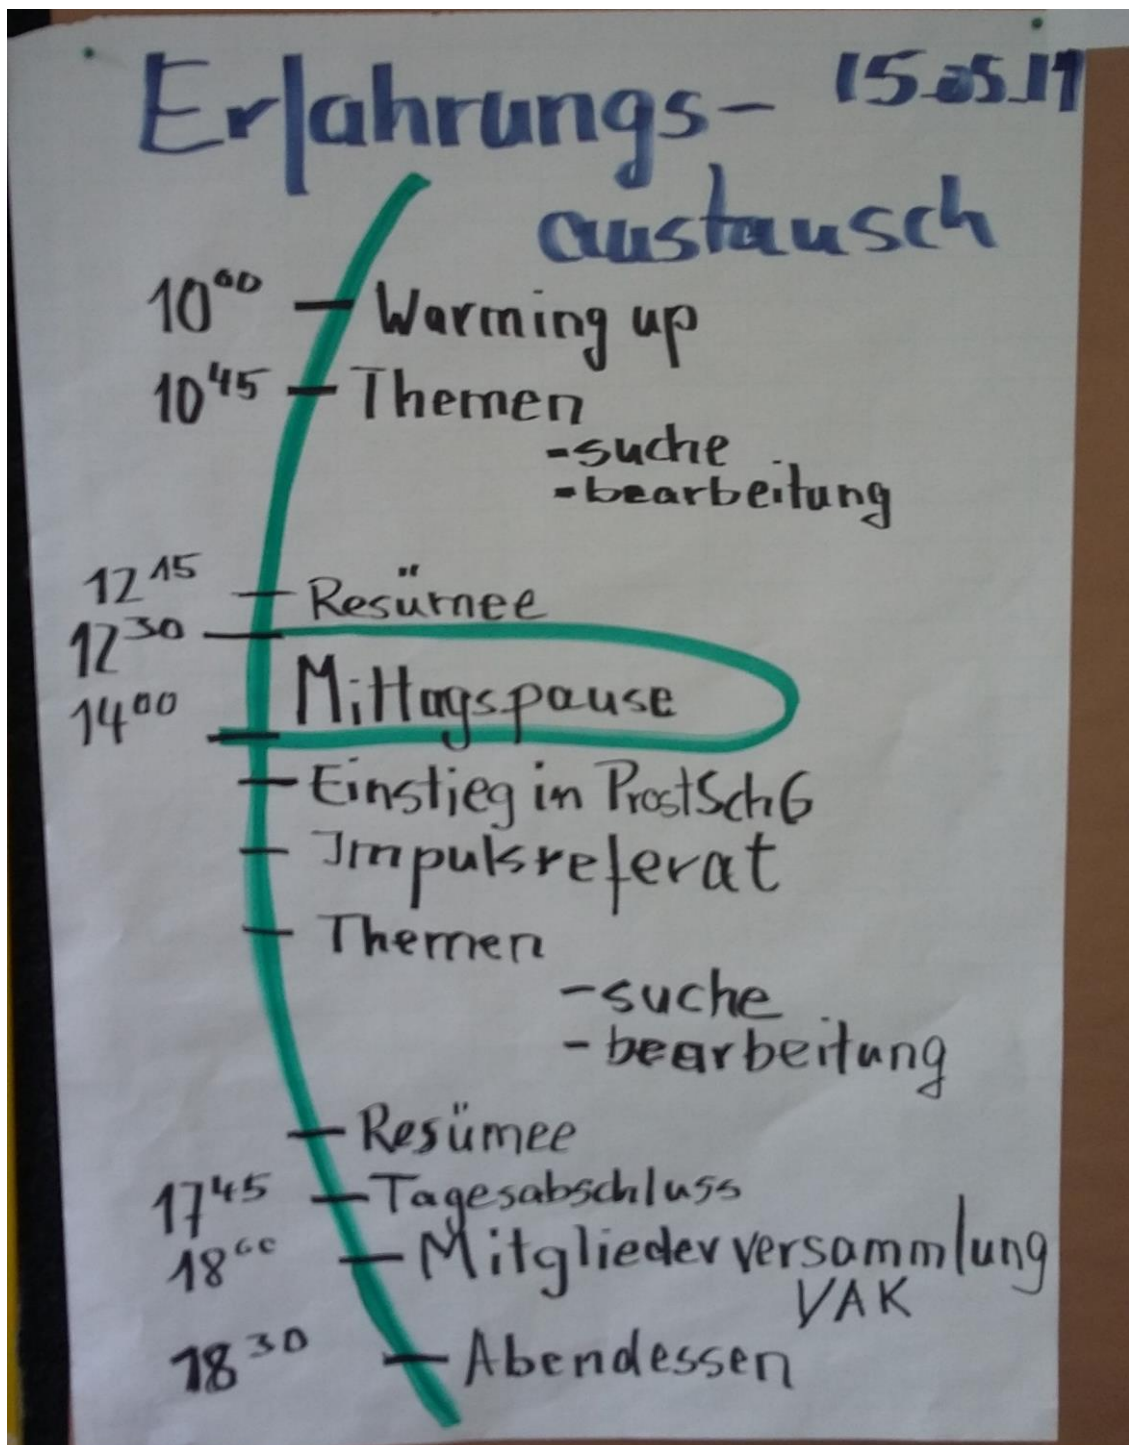 Erfahrungs- 15.05.17
austausch
10⁰⁰ - Warming up
10⁴⁵ - Themen
- suche
- bearbeitung
12¹⁵ - Resümee
12³⁰
Mittagspause
14⁰⁰
- Einstieg in ProstSchG
- Impulsreferat
- Themen
- suche
- bearbeitung
- Resümee
17⁴⁵ - Tagesabschluss
18⁰⁰ - Mitgliederversammlung
VAK
18³⁰ - Abendessen